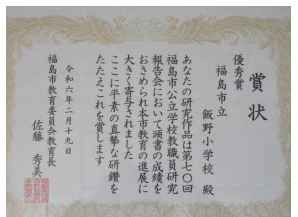 賞状
優秀賞
福島市立
飯野小学校 殿
あなたの研究作品は第七〇回
福島市公立学校教職員研究
報告会において頭書の成績を
おさめられ本市教育の進展に
大きく寄与されました
ここに平素の真摯な研鑽を
たたえこれを賞します
令和六年二月十九日
福島市教育委員会教育長
佐藤 秀美